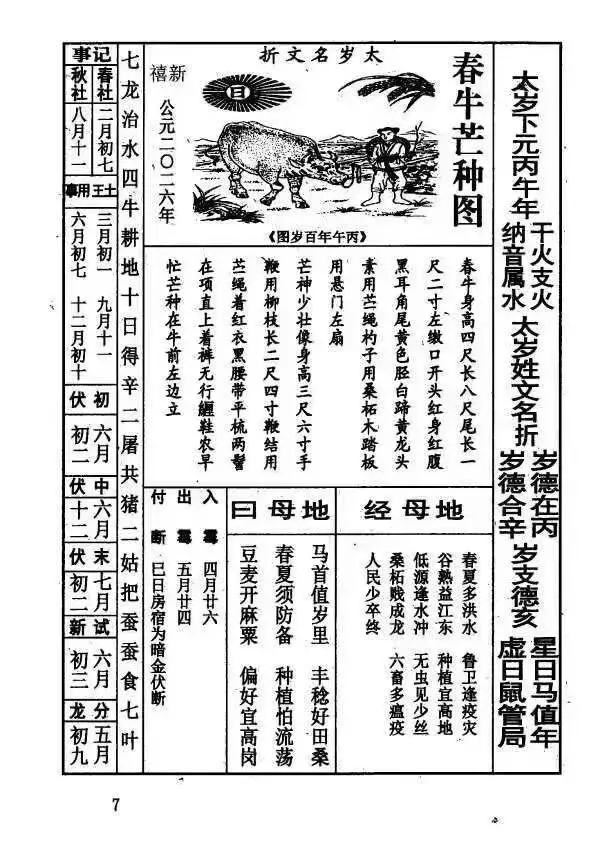 太岁下元丙午年
干火支火
纳音属水
太岁姓文名折
岁德在丙
岁德合辛
岁支德亥
星日马值年
虚日鼠管局
春牛芒种图
太岁名文折
新禧
公元二〇二六年
《丙午年百岁图》
春牛身高四尺长八尺尾长一
尺二寸左缴口开头红身红腹
黑耳角尾黄色胫白蹄黄龙头
素用苎绳杓子用桑柘木踏板
用悬门左扇
芒神少壮像身高三尺六寸手
鞭用柳枝长二尺四寸鞭结用
苎绳着红衣黑腰带平梳两髻
在项直上着裤无行纏鞋农早
忙芒种在牛前左边立
地母经
春夏多洪水 鲁卫逢疫灾
谷熟益江东 种植宜高地
低源逢水冲 无虫见少丝
桑柘贱成龙 六畜多瘟疫
人民少卒终
地母曰
马首值岁里 丰稔好田桑
春夏须防备 种植怕流荡
豆麦开麻粟 偏好宜高岗
入霉 四月廿六
出霉 五月廿四
付断 巳日房宿为暗金伏断
七龙治水四牛耕地十日得辛二屠共猪二姑把蚕蚕食七叶
记事
春社 二月初七
秋社 八月十二
土王用事
三月初一 九月十一
六月初七 十二月初十
初伏
六月初二
中伏
六月十二
末伏
七月初二
试新
六月初三
分龙
五月初九
7